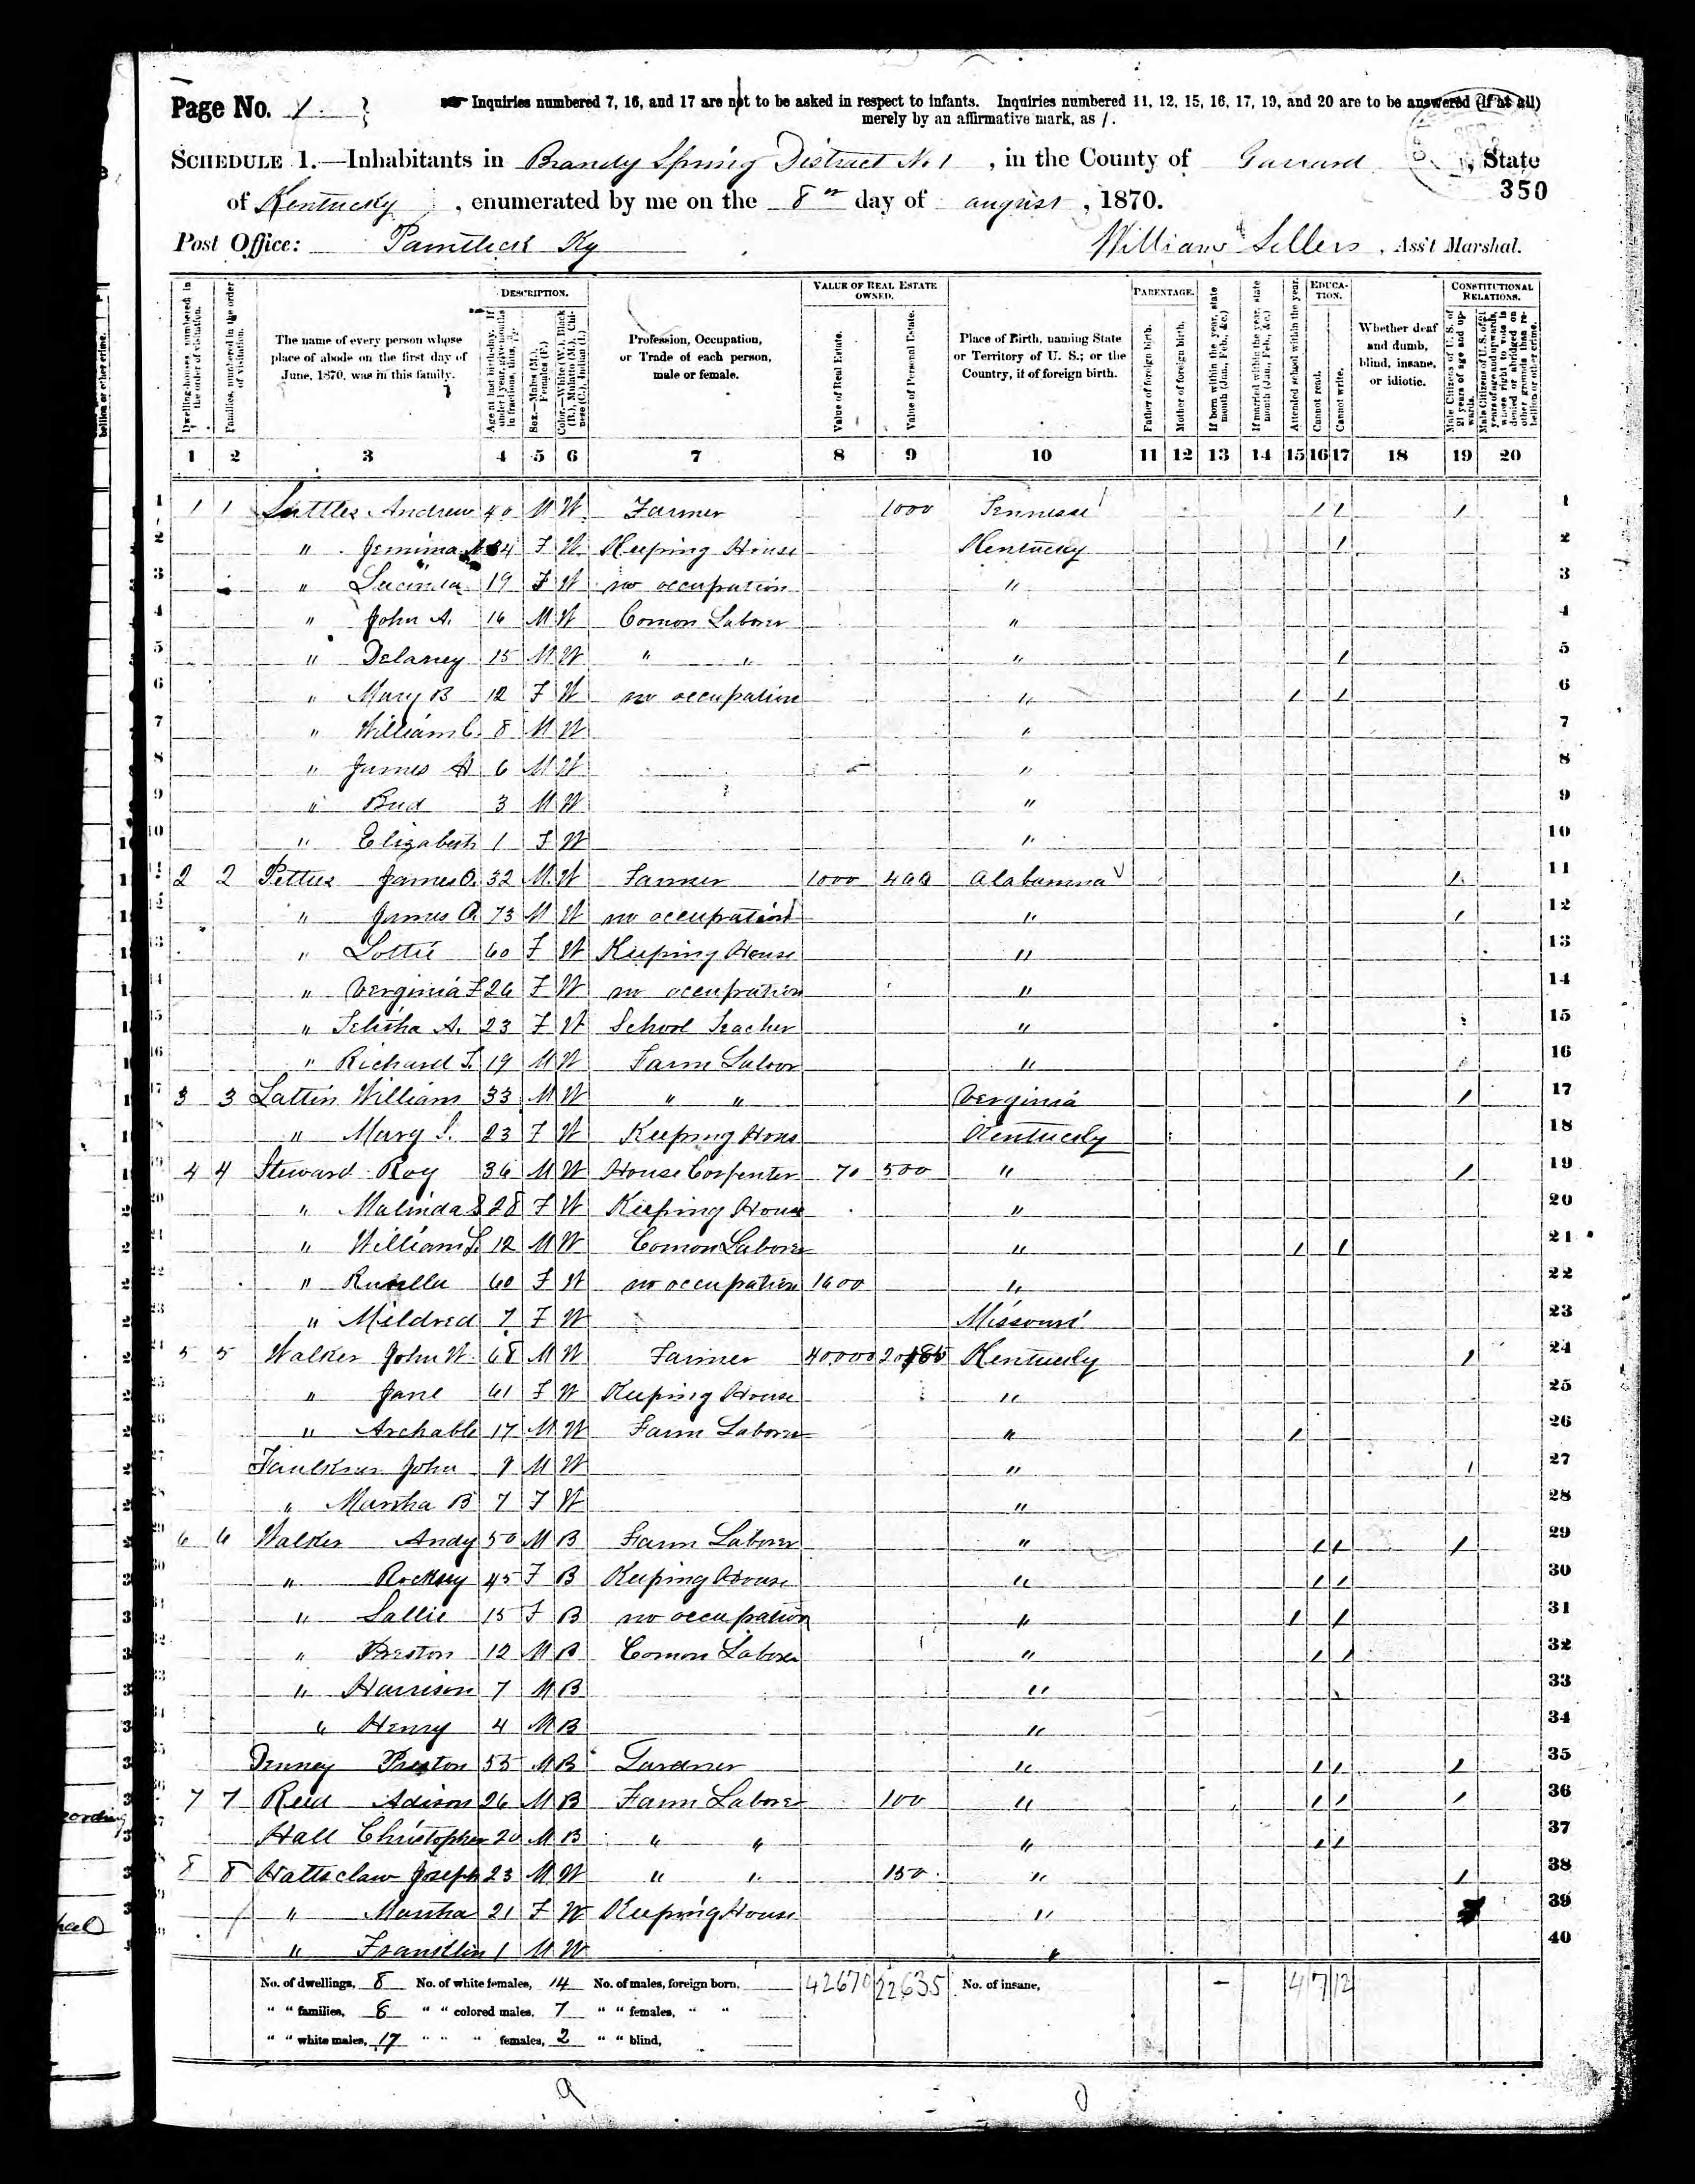 Page No. 1.
Inquiries numbered 7, 16, and 17 are not to be asked in respect to infants. Inquiries numbered 11, 12, 15, 16, 17, 19, and 20 are to be answered (if at all)
merely by an affirmative mark, as /.
SCHEDULE 1.—Inhabitants in Brandy Spring District No 1, in the County of Garrard, State
350
of Kentucky, enumerated by me on the 8th day of august, 1870.
Post Office: Paintlick Ky
William Sellers, Ass't Marshal.
Dwelling-houses, numbered in the order of visitation.
Families, numbered in the order of visitation.
The name of every person whose place of abode on the first day of June, 1870, was in this family.
DESCRIPTION.
Age at last birth-day. If under 1 year, give months in fractions, thus, 3/12.
Sex.—Males (M.), Females (F.)
Color.—White (W.), Black (B.), Mulatto (M.), Chinese (C.), Indian (I.)
Profession, Occupation, or Trade of each person, male or female.
VALUE OF REAL ESTATE OWNED.
Value of Real Estate.
Value of Personal Estate.
Place of Birth, naming State or Territory of U. S.; or the Country, if of foreign birth.
PARENTAGE.
Father of foreign birth.
Mother of foreign birth.
If born within the year, state month (Jan., Feb., &c.)
If married within the year, state month (Jan., Feb., &c.)
Attended school within the year.
EDUCATION.
Cannot read.
Cannot write.
Whether deaf and dumb, blind, insane, or idiotic.
CONSTITUTIONAL RELATIONS.
Male Citizens of U. S. of 21 years of age and upwards.
Male Citizens of U. S. of 21 years of age and upwards, whose right to vote is denied or abridged on other grounds than rebellion or other crime.
1 2 3 4 5 6 7 8 9 10 11 12 13 14 15 16 17 18 19 20
1 1 1 Andrew 40 M W Farmer 1000 Tennesse / / / 1
2 " Jemima 34 F W Keeping House Kentucky / 2
3 " Lucinda 19 F W no occupation " 3
4 " John A. 16 M W Comon Laborer " 4
5 " Delaney 15 M W " " " / 5
6 " Mary B 12 F W no occupation " / / 6
7 " William C. 8 M W " 7
8 " James H 6 M W " 8
9 " Bud 3 M W " 9
10 " Elizabeth 1 F W " 10
11 2 2 Pettus James O. 32 M W Farmer 1000 400 Alabamma / 11
12 " James O. 73 M W no occupation " / 12
13 " Lottie 60 F W Keeping House " 13
14 " Verginia F 26 F W no occupation " 14
15 " Telitha A. 23 F W School Teacher " 15
16 " Richard T. 19 M W Farm Labor " 16
17 3 3 Lattin William 33 M W " " Verginia / 17
18 " Mary J. 23 F W Keeping Hous Kentucky 18
19 4 4 Steward Roy 36 M W House Corpenter 70 500 " / 19
20 " Malinda S 28 F W Keeping House " 20
21 " William L. 12 M W Comon Laborer " / / 21
22 " 60 F W no occupation 1600 " 22
23 " Mildred 7 F W Missouri 23
24 5 5 Walker John W. 68 M W Farmer 40,000 Kentucky / 24
25 " Jane 61 F W Keeping House " 25
26 " Archable 17 M W Farm Laborer " / 26
27 Faulkner John 9 M W " / 27
28 " Martha B 7 F W " 28
29 6 6 Walker Andy 50 M B Farm Laborer " / / / 29
30 " Rocksy 45 F B Keeping House " / / 30
31 " Sallie 15 F B no occupation " / / 31
32 " Preston 12 M B Comon Laborer " / / 32
33 " Harrison 7 M B " 33
34 " Henry 4 M B " 34
35 Denney Preston 55 M B Gardner " / / / 35
36 7 7 Reed Adison 26 M B Farm Laborer 100 " / / / 36
37 Hall Christopher 20 M B " " " / / 37
38 8 8 Hattsclaw Joseph 23 M W " " 150 " / 38
39 " Martha 21 F W Keeping House " 39
40 " Franklin 1 M W " 40
No. of dwellings, 8 No. of white females, 14 No. of males, foreign born, 42670 22635 No. of insane, – 4 7 12
" " families, 8 " " colored males, 7 " " females, " "
" " white males, 17 " " " females, 2 " " blind,